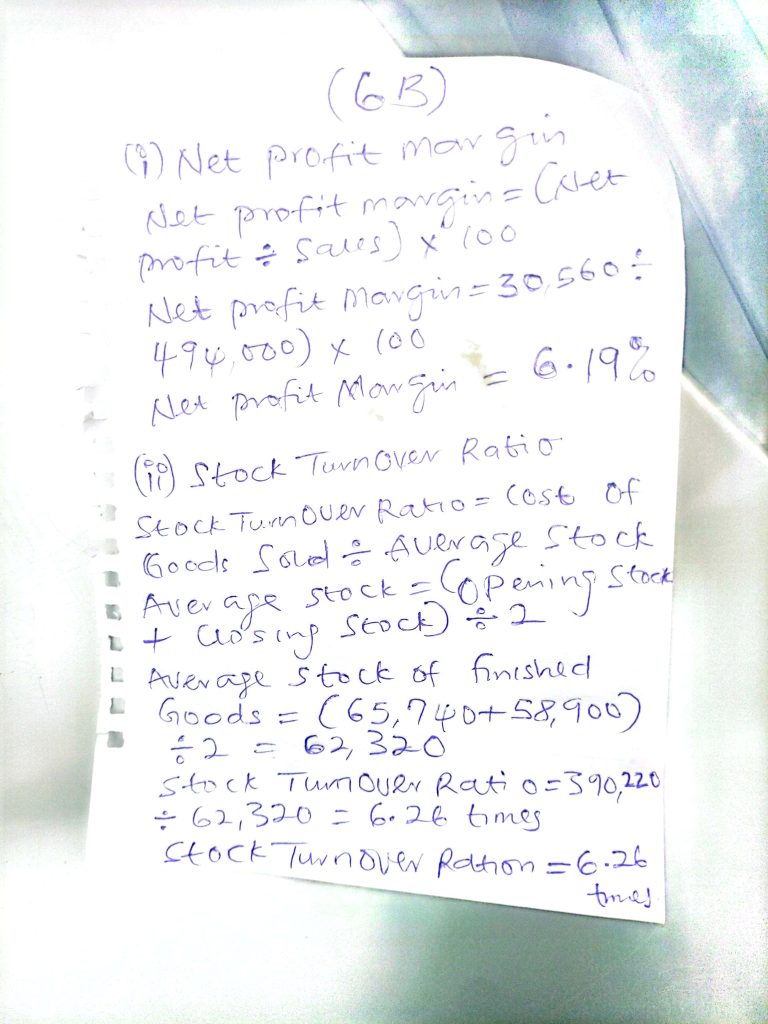 (6B)
(i) Net profit margin
Net profit margin = (Net
profit ÷ Sales) x 100
Net profit Margin = 30,560 ÷
494,000) x 100
Net profit Margin = 6.19%
(ii) Stock Turnover Ratio
Stock Turnover Ratio = Cost of
Goods Sold ÷ Average Stock
Average stock = (opening Stock
+ Closing Stock) ÷ 2
Average stock of finished
Goods = (65,740+58,900)
÷ 2 = 62,320
Stock Turnover Ratio = 390,220
÷ 62,320 = 6.26 times
Stock Turnover Ration = 6.26
times